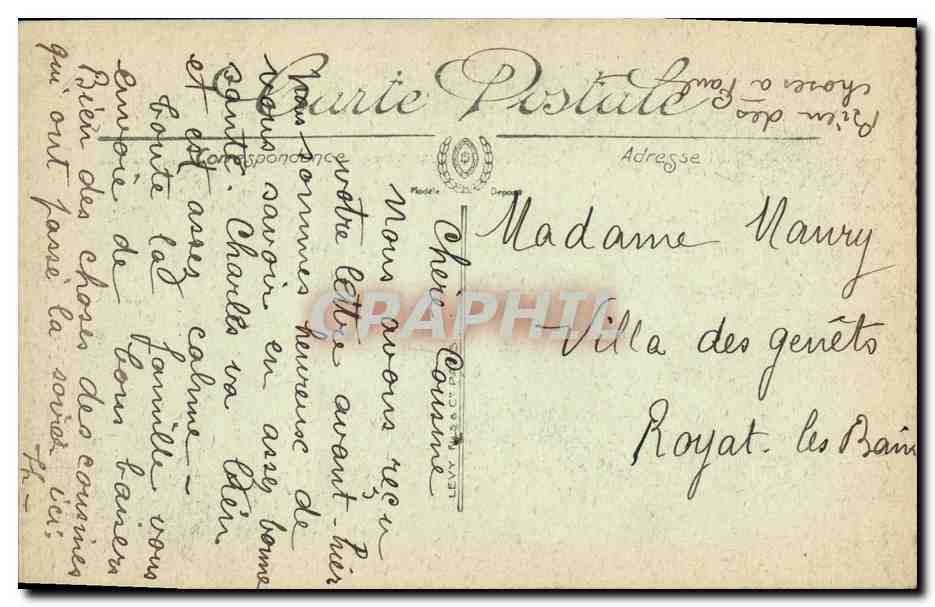 Carte Postale
Correspondance
Adresse
Modèle Déposé
Chère Cousine
Nous avons reçu
votre lettre avant-hier
Nous sommes heureux de
vous savoir en assez bonne
santé. Charles va bien
et est assez calme -
toute la famille vous
envoie de bons baisers
Bien des choses des cousines
qui ont passé la soirée ici.
Th -
Bien des
choses à Paul
Madame Maury
Villa des genêts
Royat. les Bain
LEVY
CARAPHIL